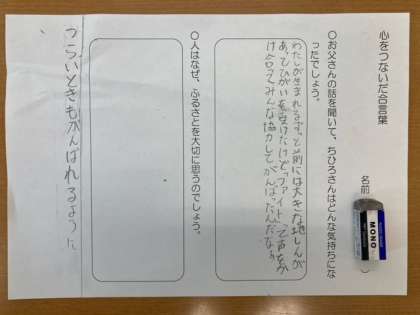 心をつないだ合言葉
名前
MONO
○お父さんの話を聞いて、ちひろさんはどんな気持ちにな
ったでしょう。
わたしが生まれるずっと前には大きな地しんが
あってひがいを受けたけどファイトって声をか
け合ってみんな協力してがんばったんだなあ
○人はなぜ、ふるさとを大切に思うのでしょう。
つらいときもがんばれるように